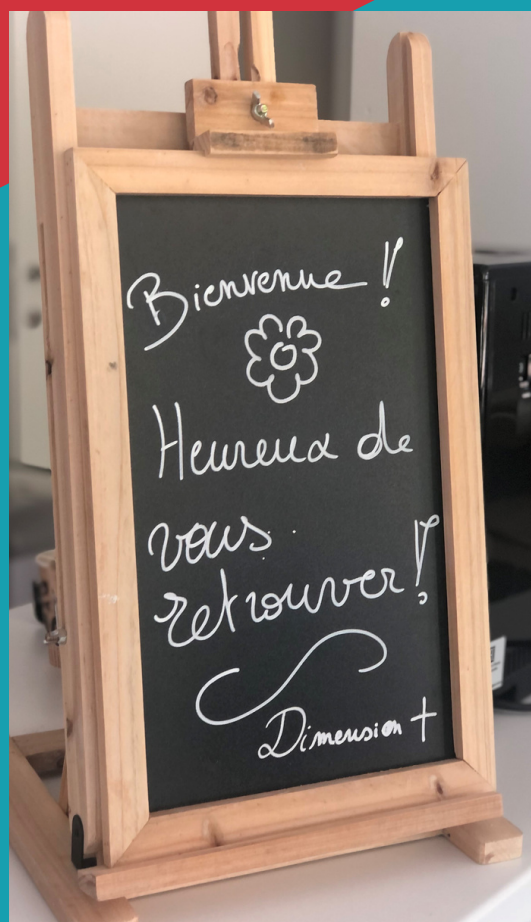 Bienvenue !
Heureux de
vous
retrouver !
Dimension +